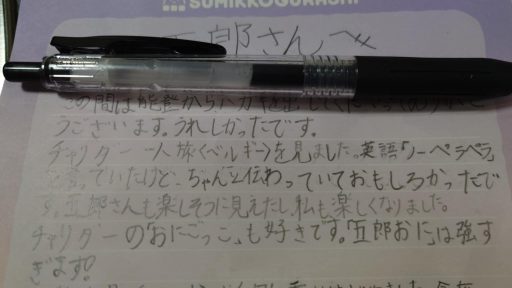 SUMIKKOGURASHI
五郎さんへ
この間は能登からハガキを出してくださってありがと
うございます。うれしかったです。
チャリダー 一人旅〈ベルギー〉を見ました。英語「ノーペラペラ」
っていたけど、ちゃんと伝わっていておもしろかったで
す。五郎さんも楽しそうに見えたし、私も楽しくなりました。
チャリダーの「おにごっこ」も好きです。「五郎おに」は強す
ぎます。